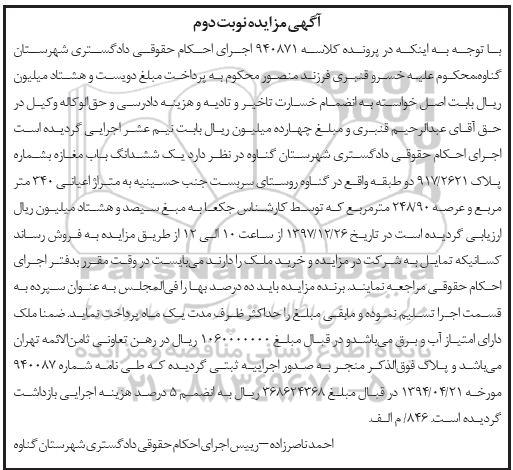 آگهی مزایده نوبت دوم
با توجه به اینکه در پرونده کلاسه ۹۴۰۸۷۱ اجرای احکام حقوقی دادگستری شهرستان
گناوه،محکوم علیه خسرو قنبری فرزند منصور محکوم به پرداخت مبلغ دویست و هشتاد میلیون
ریال بابت اصل خواسته به انضمام خسارت تاخیر و تادیه و هزینه دادرسی و حق‌الوکاله وکیل در
حق آقای عبدالرحیم قنبری و مبلغ چهارده میلیون ریال بابت نیم عشر اجرایی گردیده است
اجرای احکام حقوقی دادگستری شهرستان گناوه در نظر دارد یک ششدانگ باب مغازه بشماره
پلاک ۹۱۷/۲۶۲۱ دو طبقه واقع در گناوه روستای سربست جنب حسینیه به متراژ اعیانی ۳۴۰ متر
مربع و عرصه ۲۴۸/۹۰ مترمربع که توسط کارشناس جکعا به مبغ سیصد و هشتاد میلیون ریال
ارزیابی گردیده است در تاریخ ۱۳۹۷/۱۲/۲۶ از ساعت ۱۰ الی ۱۲ از طریق مزایده به فروش رساند
کسانیکه تمایل به شرکت در مزایده و خرید ملک را دارند می‌بایست در وقت مقرر بدفتر اجرای
احکام حقوقی مراجعه نمایند. برنده مزایده باید ده درصد بها را فی‌المجلس به عنوان سپرده به
قسمت اجرا تسلیم نموده و مابقی مبلغ را حداکثر ظرف مدت یک ماه پرداخت نماید. ضمنا ملک
دارای امتیاز آب و برق می‌باشدو در قبال مبلغ ۱۰۶۰۰۰۰۰۰۰ ریال در رهن تعاونی ثامن‌الائمه تهران
می‌باشد و پلاک فوق‌الذکر منجر به صدور اجراییه ثبتی گردیده که طی نامه شماره ۹۴۰۰۸۷
مورخه ۱۳۹۴/۰۴/۲۱ در قبال مبلغ ۳۶۸۶۳۴۳۶۸ ریال به انضمم ۵ درصد هزینه اجرایی بازداشت
گردیده است. ۸۴۶/ م الف.
احمد ناصرزاده – رییس اجرای احکام حقوقی دادگستری شهرستان گناوه